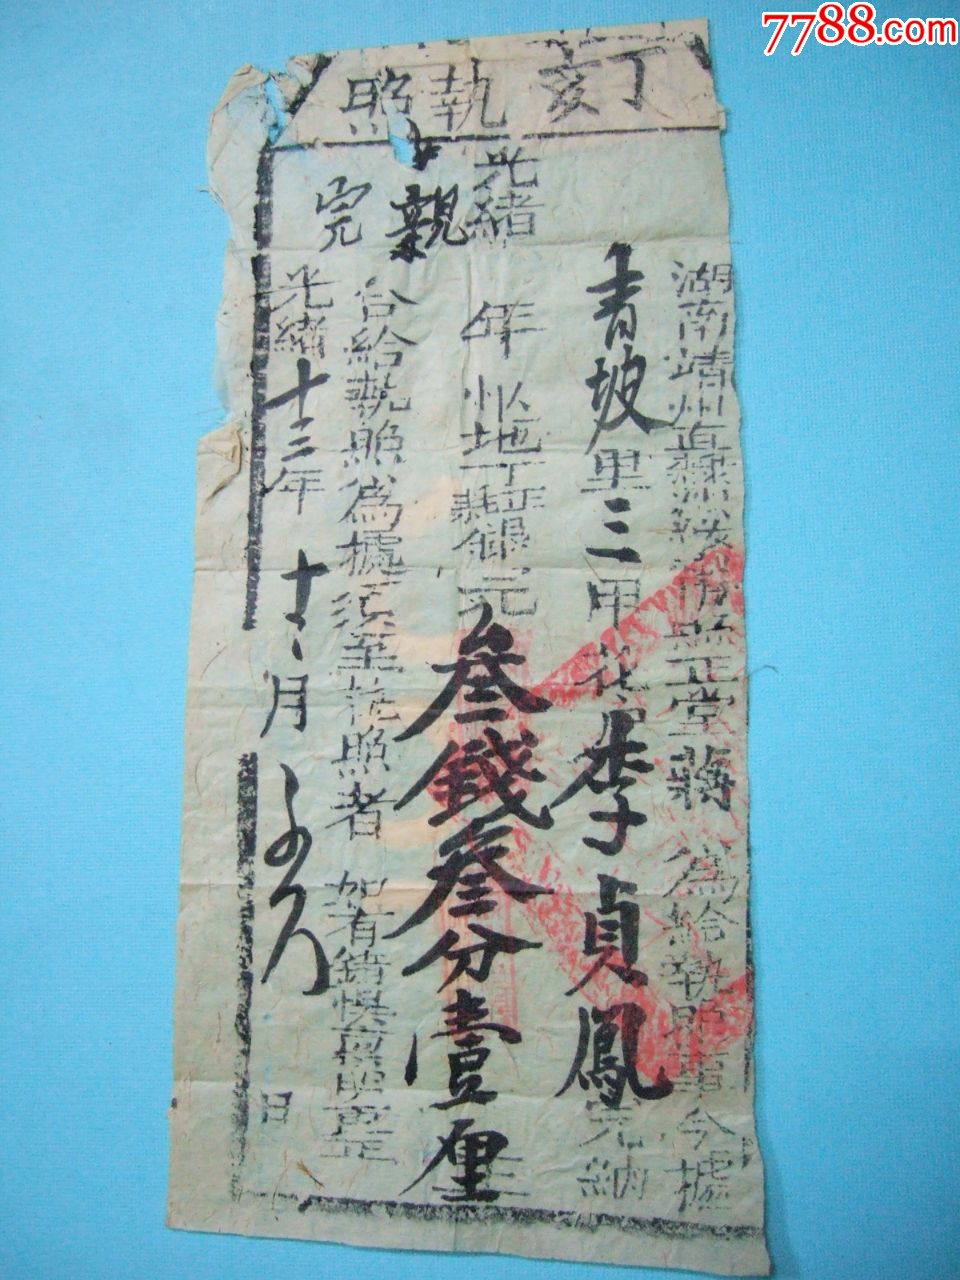 7788.com
丁亥執照
湖南靖州直隸綏寧縣正堂蔣 為給執照事今據
青坡里三甲花戶李貞鳳完納
光緒 年 地丁正耗銀元叁錢叁分壹厘
親
合給執照為據須至執照者 如有錯悞稟明更正
完
光緒十三年 十 月 日